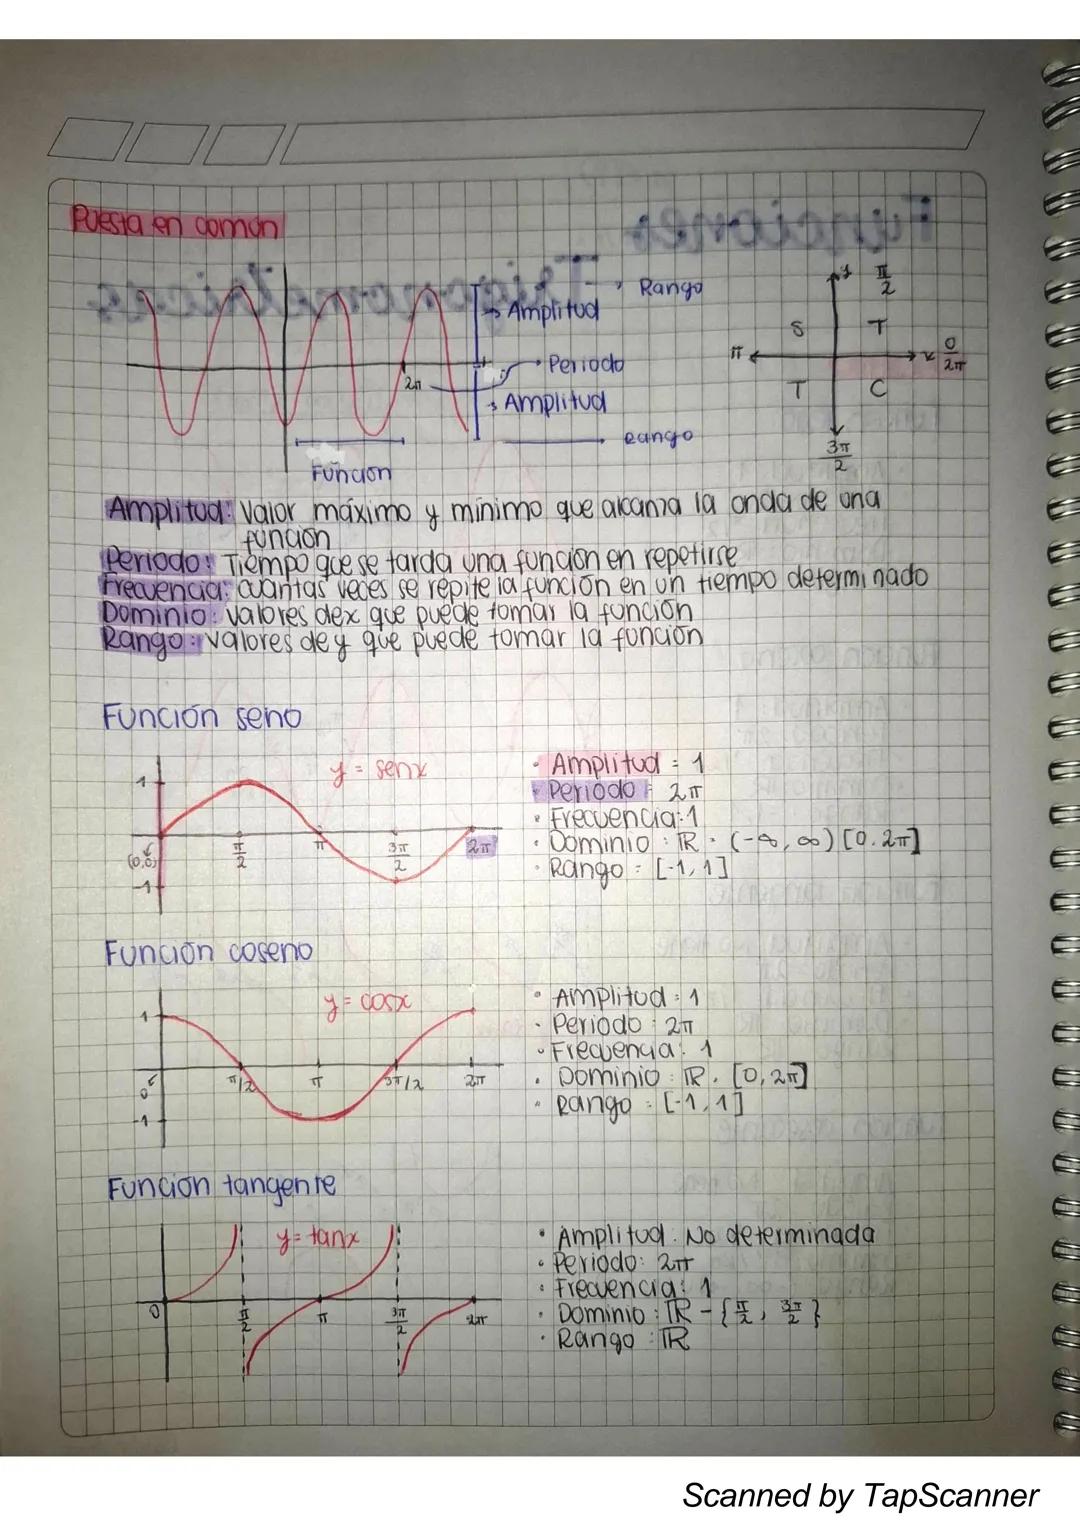 Puesta en común
Rango
Amplitud
Periodo
2π
Amplitud
Rango
Función
y
π/2
S
T
π
x
0/2π
T
C
3π/2
Amplitud: Valor máximo y mínimo que alcanza la onda de una
función
Periodo: Tiempo que se tarda una función en repetirse
Frecuencia: cuantas veces se repite la función en un tiempo determinado
Dominio: valores de x que puede tomar la función
Rango: valores de y que puede tomar la función
Función seno
y = senx
1
(0,0)
π/2
π
3π/2
2π
-1
• Amplitud = 1
• Periodo = 2π
• Frecuencia: 1
• Dominio: ℝ • (-∞, ∞) [0, 2π]
• Rango = [-1, 1]
Función coseno
y = cosx
1
0
π/2
π
3π/2
2π
-1
• Amplitud: 1
• Periodo: 2π
• Frecuencia: 1
• Dominio: ℝ. [0, 2π]
• Rango: [-1, 1]
Función tangente
y = tanx
0
π/2
π
3π/2
2π
• Amplitud: No determinada
• Periodo: 2π
• Frecuencia: 1
• Dominio: ℝ - {π/2, 3π/2}
• Rango: ℝ
Scanned by TapScanner